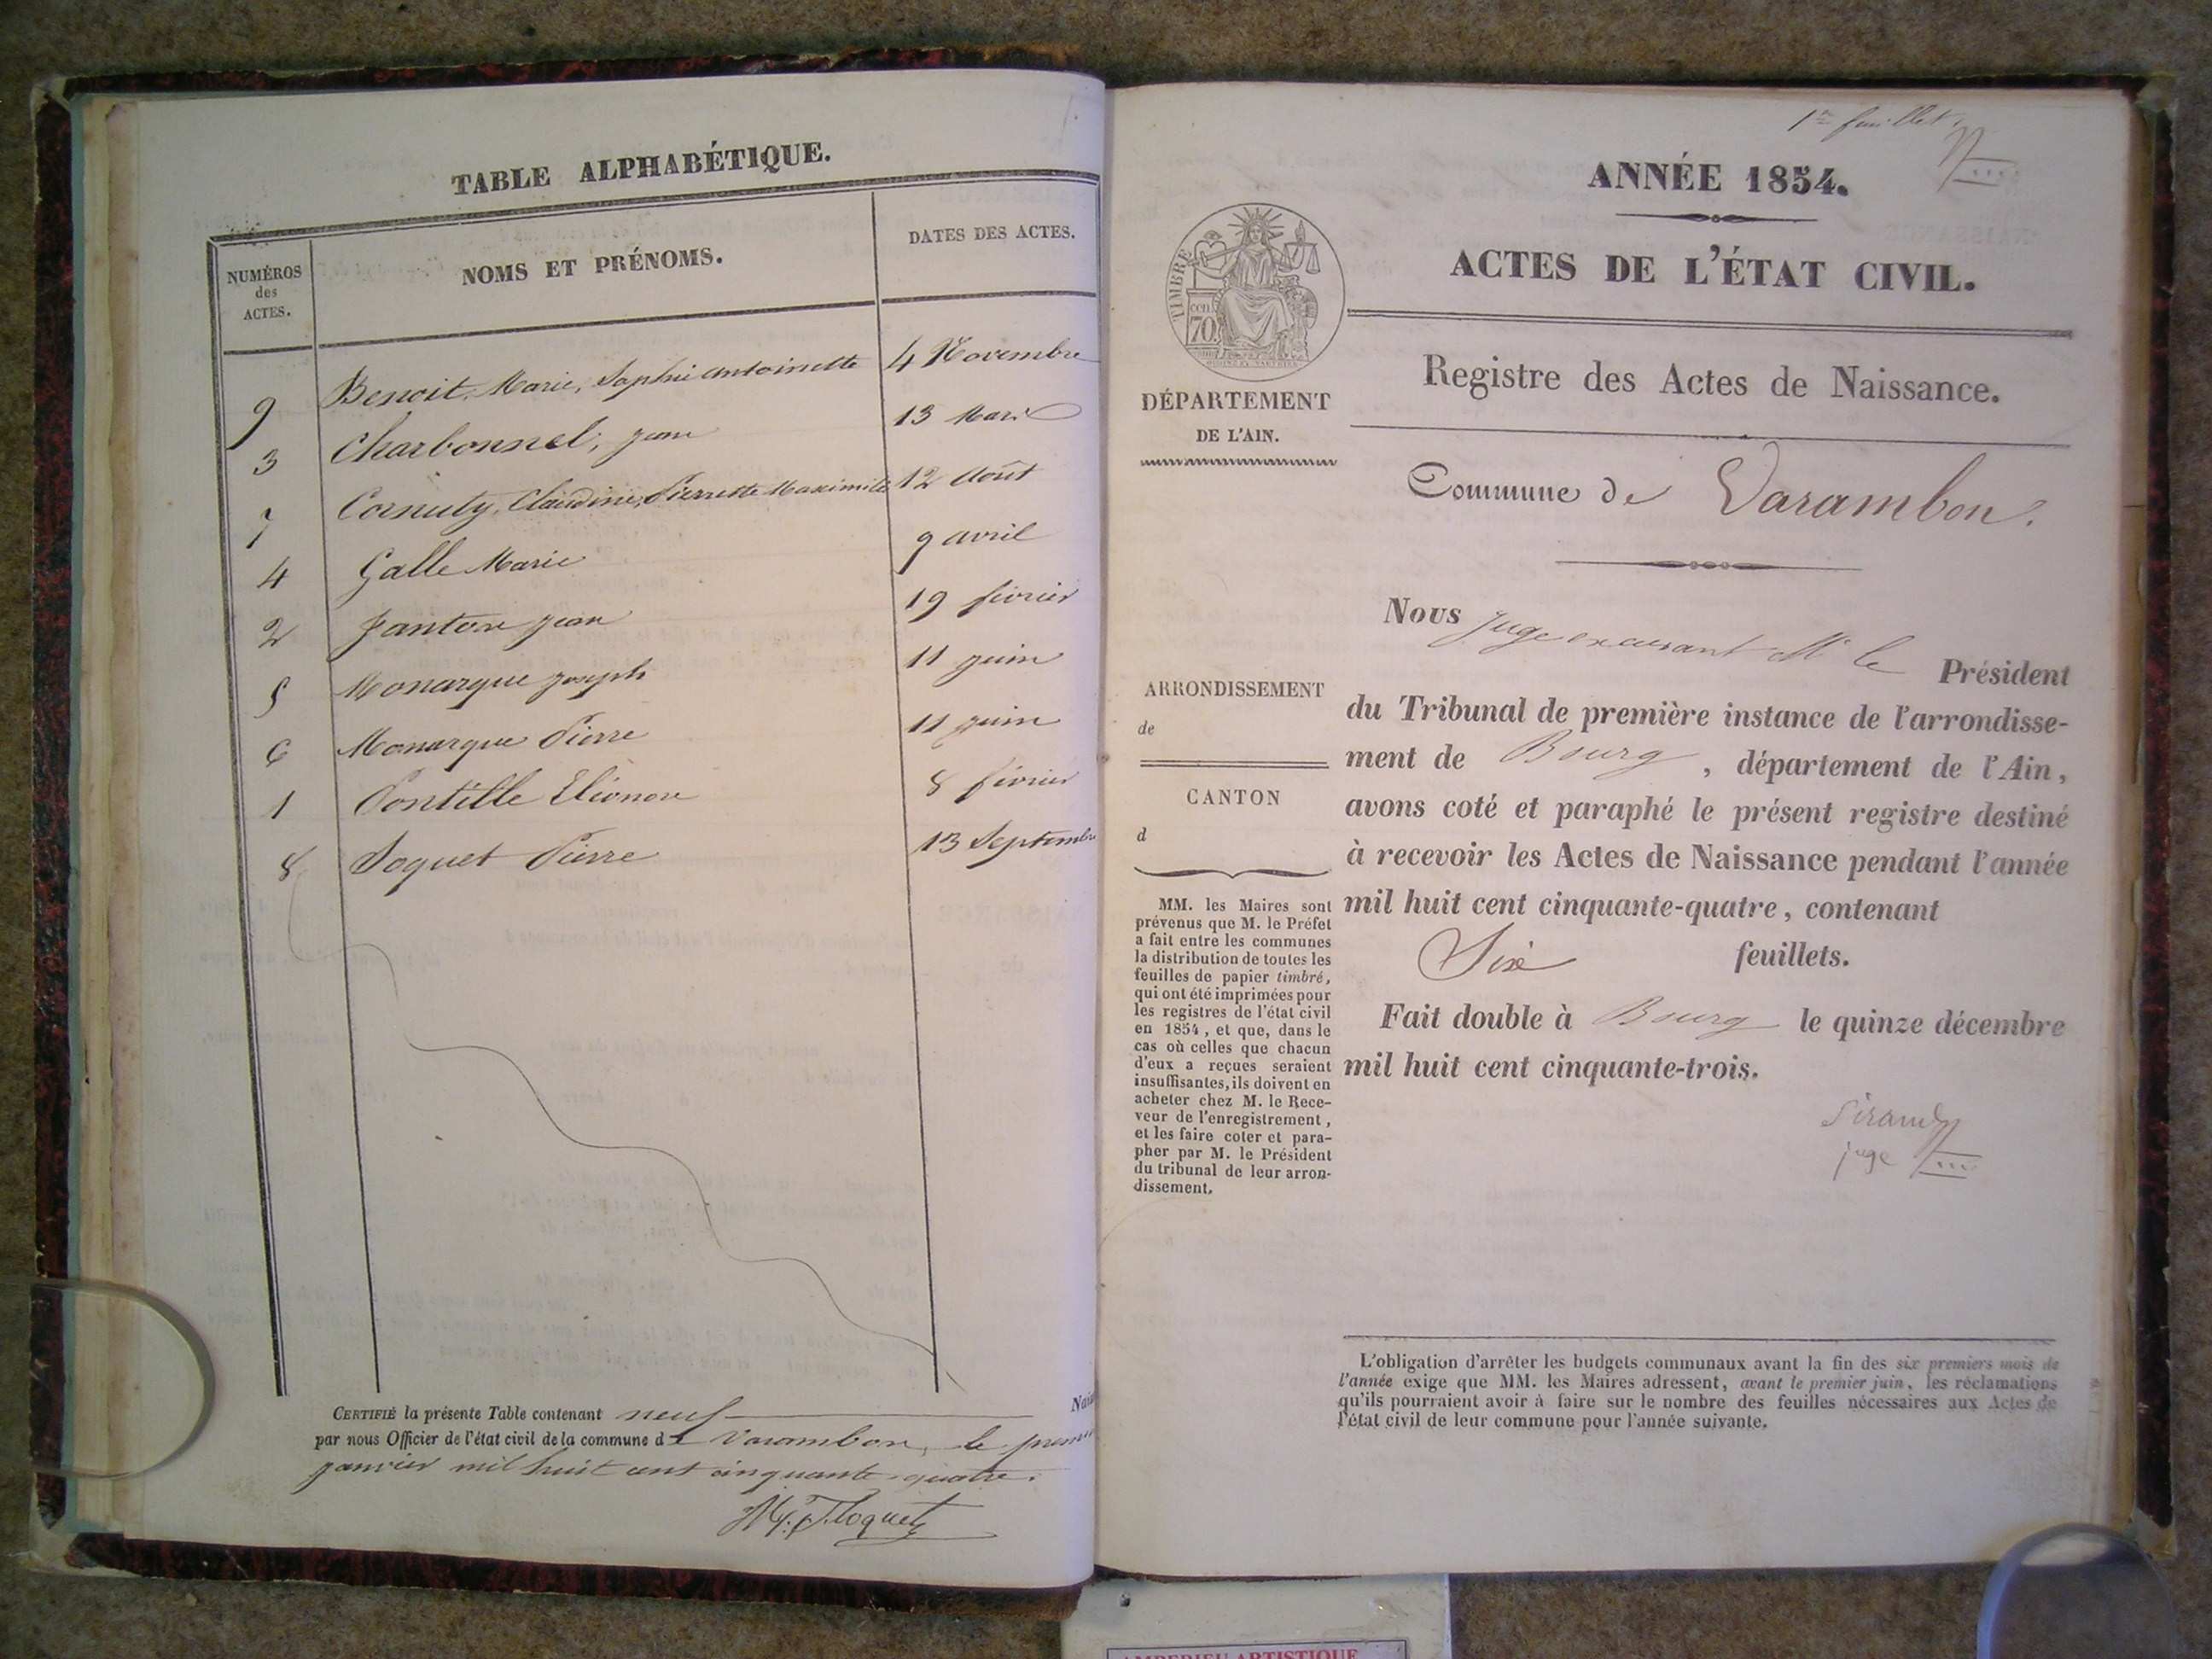 TABLE ALPHABÉTIQUE.
NUMÉROS
des
ACTES.
NOMS ET PRÉNOMS.
DATES DES ACTES.
9 Benoit, Marie, Sophie Antoinette 4 Novembre
3 Charbonnel, jean 13 Mars
7 Cornuty, Claudine, Pierrette Maximile 12 Août
4 Galle Marie 9 avril
2 Janton jean 19 février
5 Monarque joseph 11 juin
6 Monarque Pierre 11 juin
1 Pontille Eléonore 8 février
8 Soquet Pierre 13 Septembre
CERTIFIÉ la présente Table contenant neuf Nais
par nous Officier de l'état civil de la commune de Varambon, le premier
janvier mil huit cent cinquante-quatre.
1er feuillet.
ANNÉE 1854.
ACTES DE L'ÉTAT CIVIL.
TIMBRE
cen.
70
Registre des Actes de Naissance.
DÉPARTEMENT
DE L'AIN.
Commune de Varambon.
Nous juge excusant Mr le Président
du Tribunal de première instance de l'arrondisse-
ment de Bourg, département de l'Ain,
avons coté et paraphé le présent registre destiné
à recevoir les Actes de Naissance pendant l'année
mil huit cent cinquante-quatre, contenant
Six feuillets.
Fait double à Bourg le quinze décembre
mil huit cent cinquante-trois.
juge
ARRONDISSEMENT
de
CANTON
d
MM. les Maires sont
prévenus que M. le Préfet
a fait entre les communes
la distribution de toutes les
feuilles de papier timbré,
qui ont été imprimées pour
les registres de l'état civil
en 1854, et que, dans le
cas où celles que chacun
d'eux a reçues seraient
insuffisantes, ils doivent en
acheter chez M. le Rece-
veur de l'enregistrement,
et les faire coter et para-
pher par M. le Président
du tribunal de leur arron-
dissement.
L'obligation d'arrêter les budgets communaux avant la fin des six premiers mois de
l'année exige que MM. les Maires adressent, avant le premier juin, les réclamations
qu'ils pourraient avoir à faire sur le nombre des feuilles nécessaires aux Actes de
l'état civil de leur commune pour l'année suivante.
AMBERIEU ARTISTIQUE